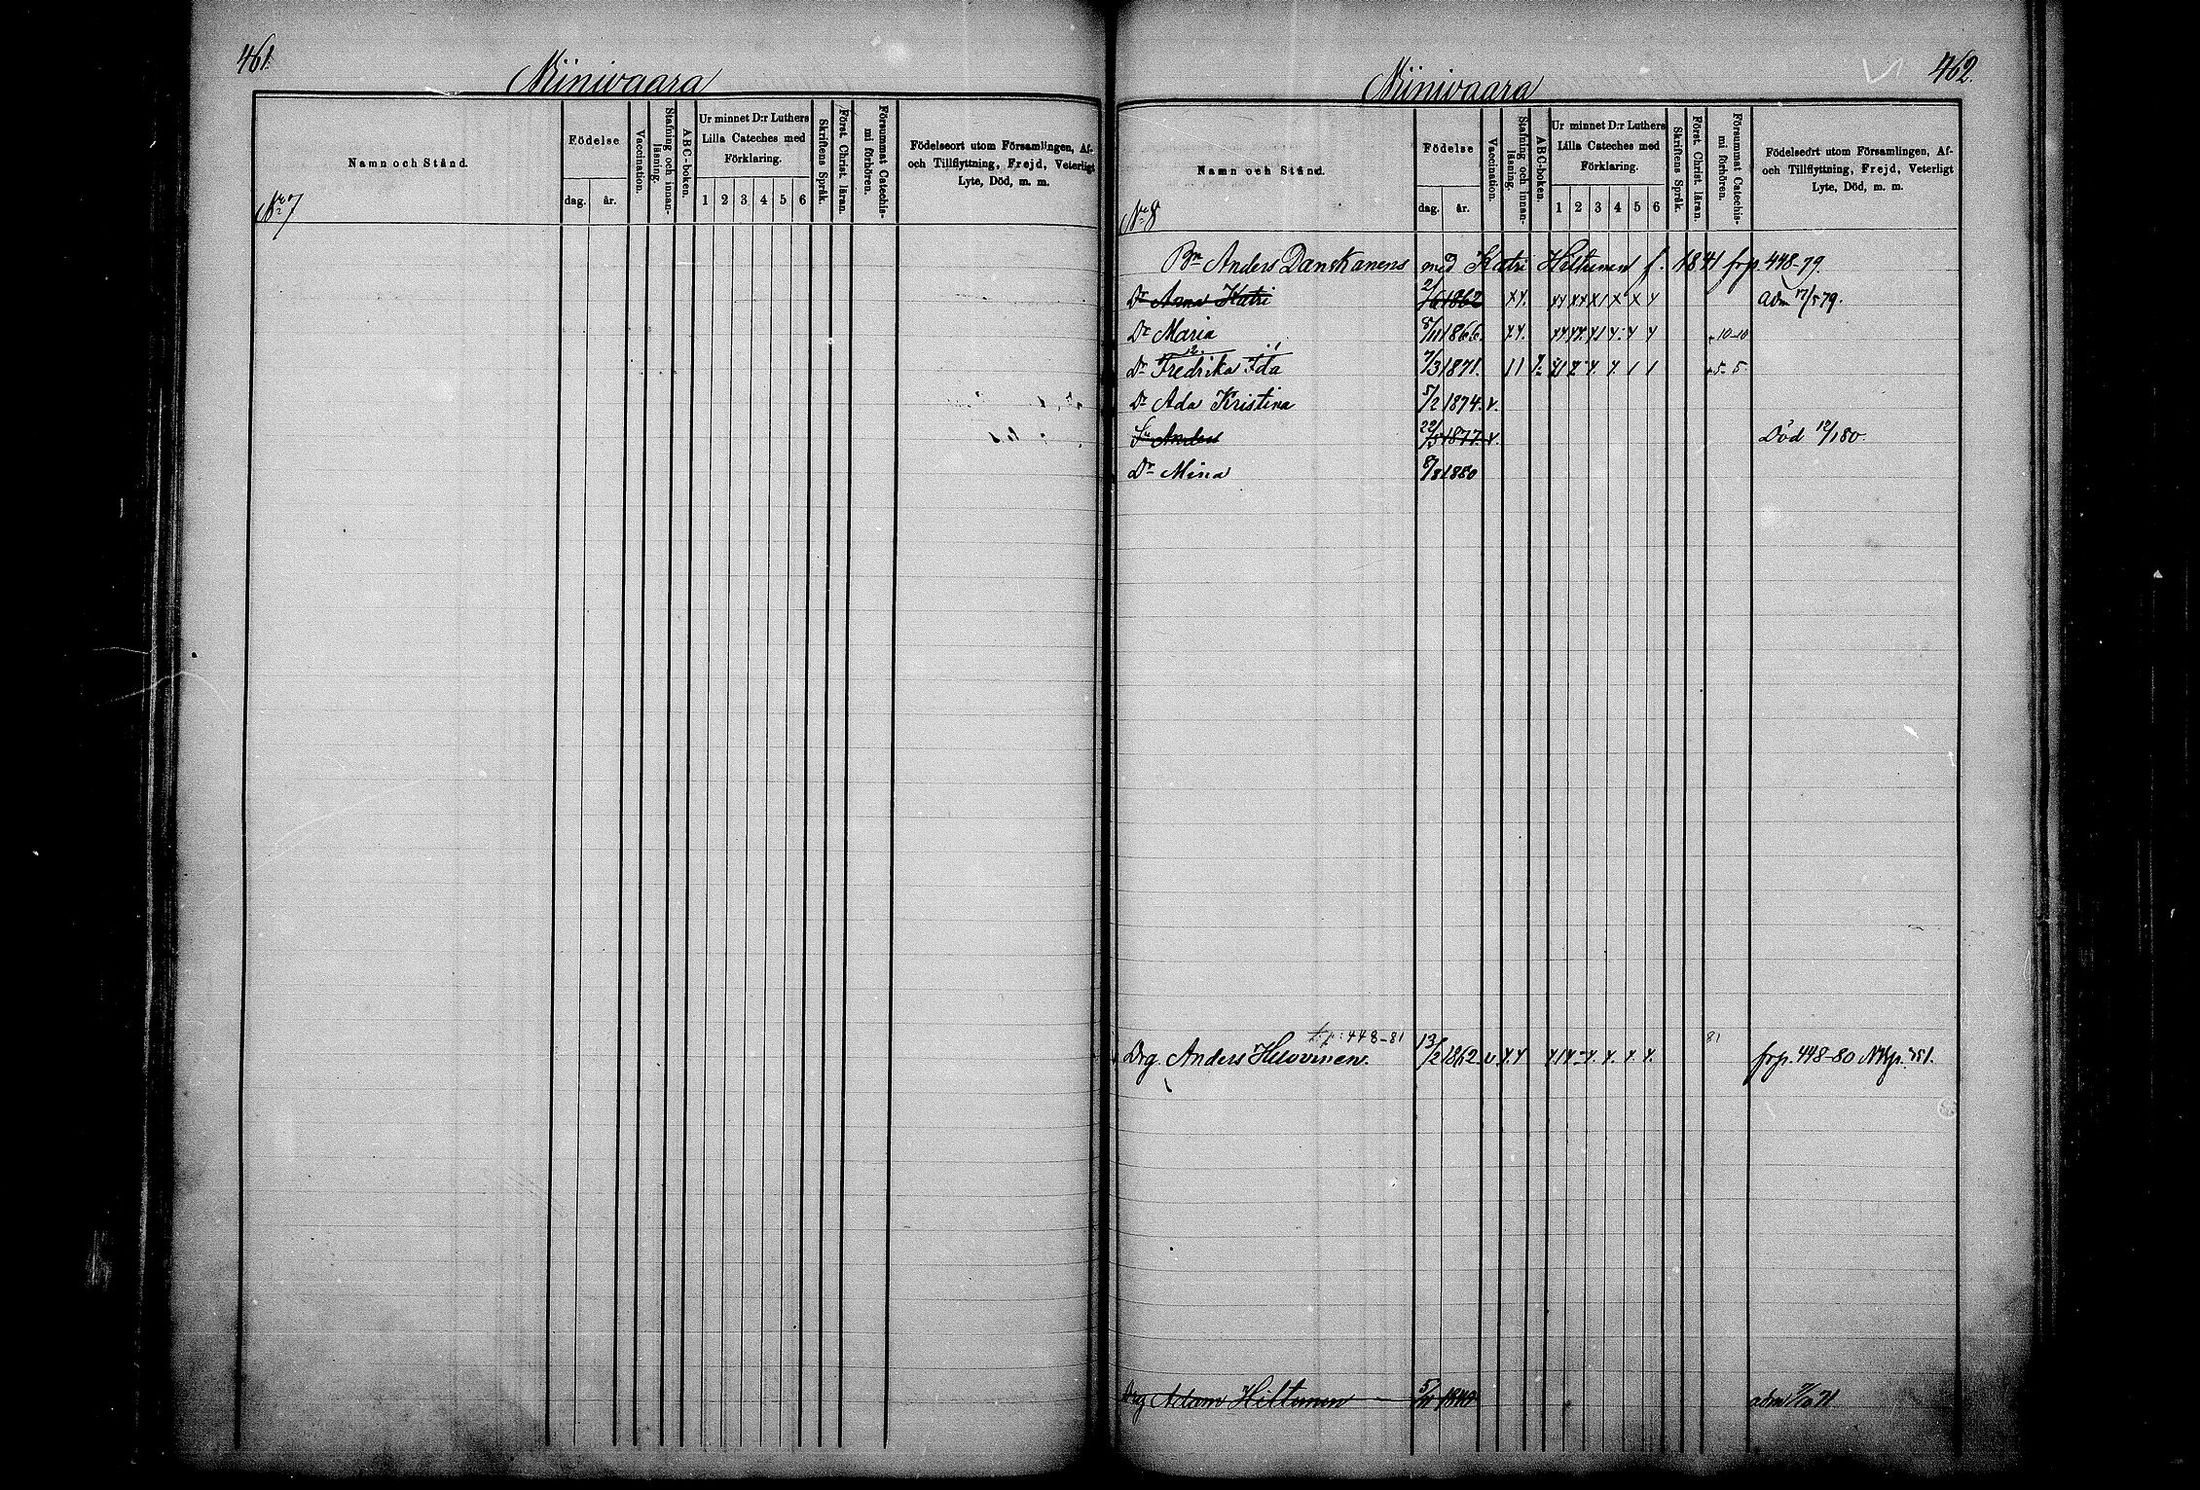 461.
Miiniwaara
Namn och Stånd.
Födelse
dag.
år.
Vaccination.
Stafning och innan-
läsning.
ABC-boken.
Ur minnet D:r Luthers
Lilla Cateches med
Förklaring.
1 2 3 4 5 6
Skriftens Språk.
Först. Christ. läran.
Försummat Catechis-
mi förhören.
Födelseort utom Församlingen, Af-
och Tillflyttning, Frejd, Veterligt
Lyte, Död, m. m.
No 7
462.
Miiniwaara
Namn och Stånd.
Födelse
dag.
år.
Vaccination.
Stafning och innan-
läsning.
ABC-boken.
Ur minnet D:r Luthers
Lilla Cateches med
Förklaring.
1 2 3 4 5 6
Skriftens Språk.
Först. Christ. läran.
Försummat Catechis-
mi förhören.
Födelseort utom Församlingen, Af-
och Tillflyttning, Frejd, Veterligt
Lyte, Död, m. m.
No 8
Bn Anders Danskanens med Katri Hiltunen f. 1841 frp. 448-79.
Dr Anna Katri 2/6 1862 adm 17/5 79.
Dr Maria 8/11 1866. 10-10
Dr Fredrika Ida 7/3 1871. 5-5
Dr Ada Kristina 5/2 1874. v.
Sn Anders 22/5 1877. v. Död 12/1 80.
Dr Mina 8/8 1880
tp: 448-81
Drg. Anders Huovinen. 13/2 1862 v 81 frp. 448-80
Drg Adam Hiltunen 5/11 1840 adm 71